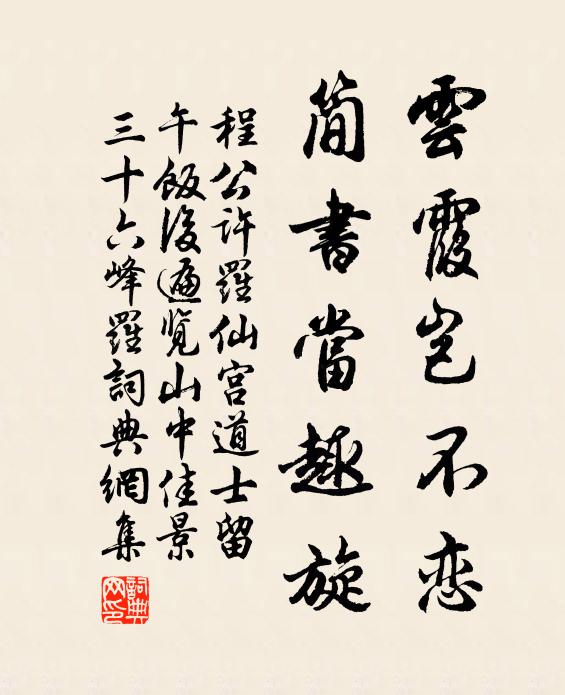 雲霞岂不恋
简書當趣旋
程公许羅仙宫道士留
午飯後遍览山中佳景
三十六峰羅詞典網集
詞典网印